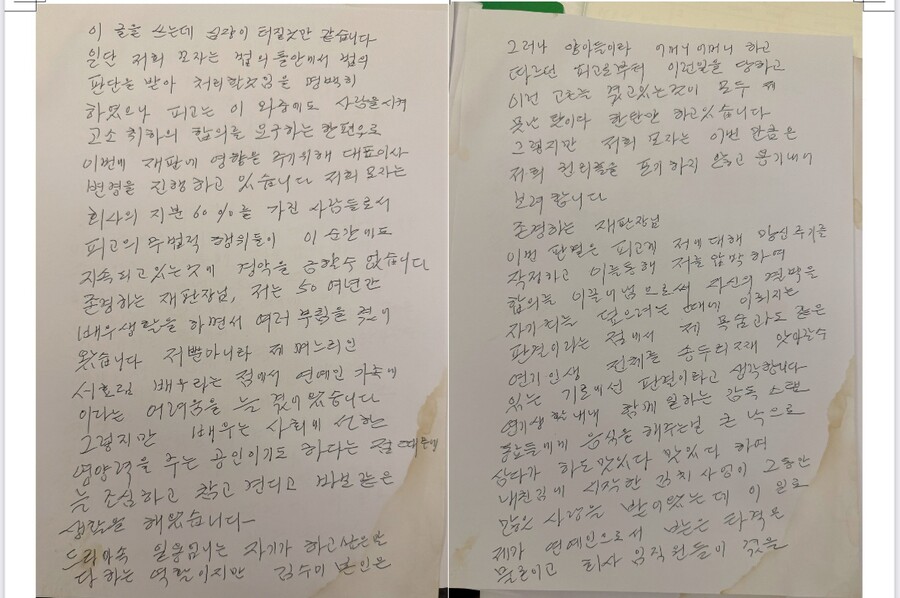 이 글을 쓰는데 심장이 터질것만 같습니다
일단 저희 모자는 법의 틀안에서 법의
판단을 받아 처리할것임을 명백히
하였으나 피고는 이 와중에도 사람을시켜
고소 취하의 합의를 요구하는 한편으로
이번에 재판에 영향을 주기위해 대표이사
변경을 진행하고 있습니다 저희 모자는
회사의 지분 60%를 가진 사람들로서
피고의 무법적 행위들이 이 순간에도
지속되고있는것에 경악을 금할수 없습니다
존경하는 재판장님, 저는 50여년간
배우생활을 하면서 여러 부침을 겪어
왔습니다 저뿐아니라 제 며느리인
서효림 배우라는 점에서 연예인 가족에
이다는 어려움을 늘 겪어왔습니다
그렇지만 배우는 사회에 선한
영양력을 주는 공인이기도 하다는 점 때문에
늘 조심하고 참고 견디고 바보같은
생활을 해왔습니다
드라마속 일용엄니는 자기가 하고싶은말
다 하는 역할이지만 김수미 본인은
그러나 양아들이라 어머니 어머니 하고
따르던 피고로부터 이런일을 당하고
이런 고초를 겪고있는것이 모두 제
못난 탓이다 한탄만 하고있습니다
그렇지만 저희 모자는 이번 만큼은
저희 권리를 포기하지 않고 용기내어
보려 합니다
존경하는 재판장님
이번 판결은 피고가 저에대해 망신주기를
작정하고 이를통해 저를 압박하여
합의를 이끌어냄으로써 자신의 결박을
자기죄는 덮으려는 때에 이뤄지는
판결이라는 점에서 제 목숨과도 같은
연기인생 전체를 송두리째 앗아갈수
있는 기로에선 판결이라고 생각합니다
연기생활내내 함께 일하는 감독 스탭
동료들에게 음식을 해주는걸 큰 낙으로
삼다가 하도맛있다 맛있다 하여
내친김에 시작한 김치 사업이 그동안
많은 사랑을 받아왔는데 이 일로
제가 연예인으로서 받은 타격은
물론이고 회사 임직원들이 겪을